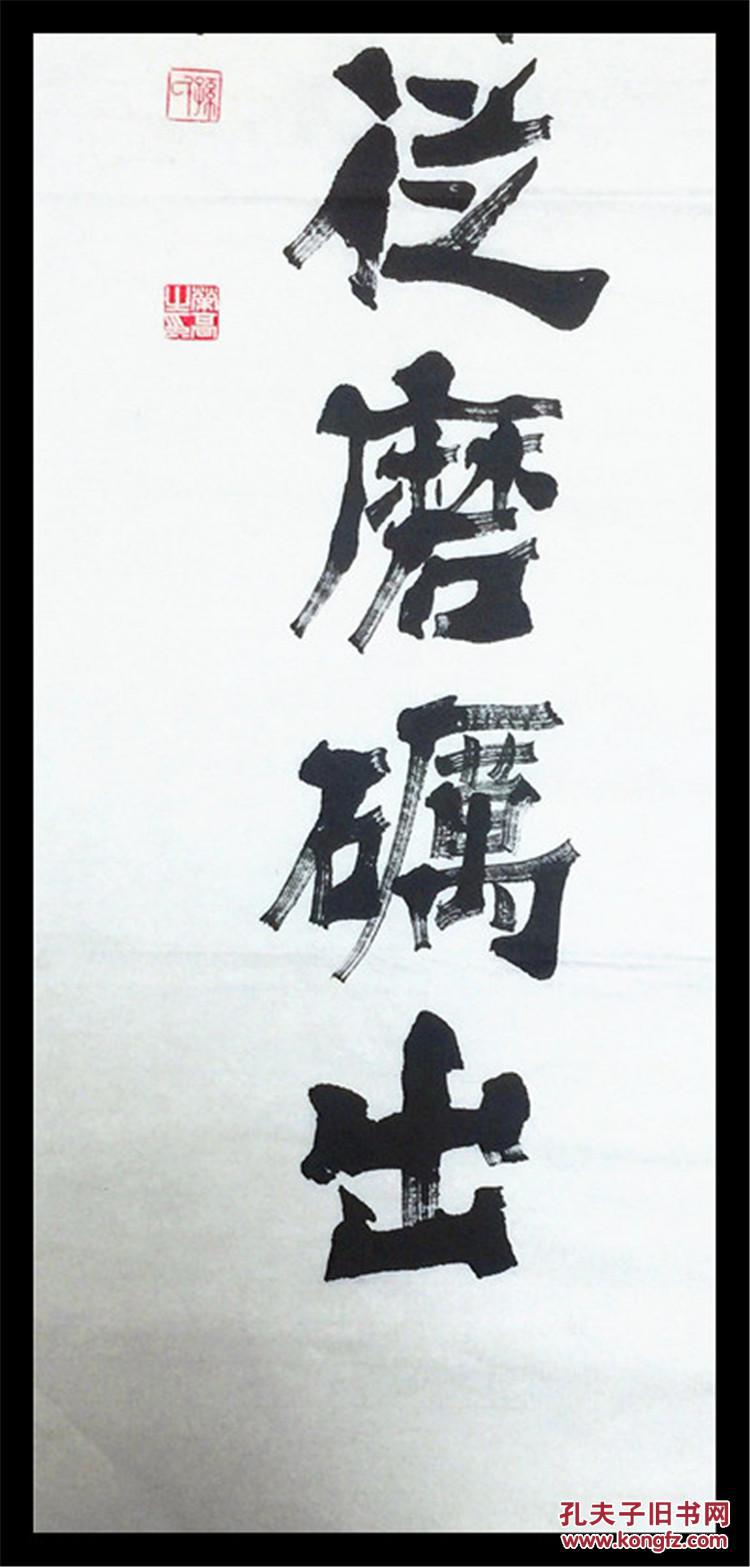 從磨礪出
孔夫子旧书网
www.kongfz.com